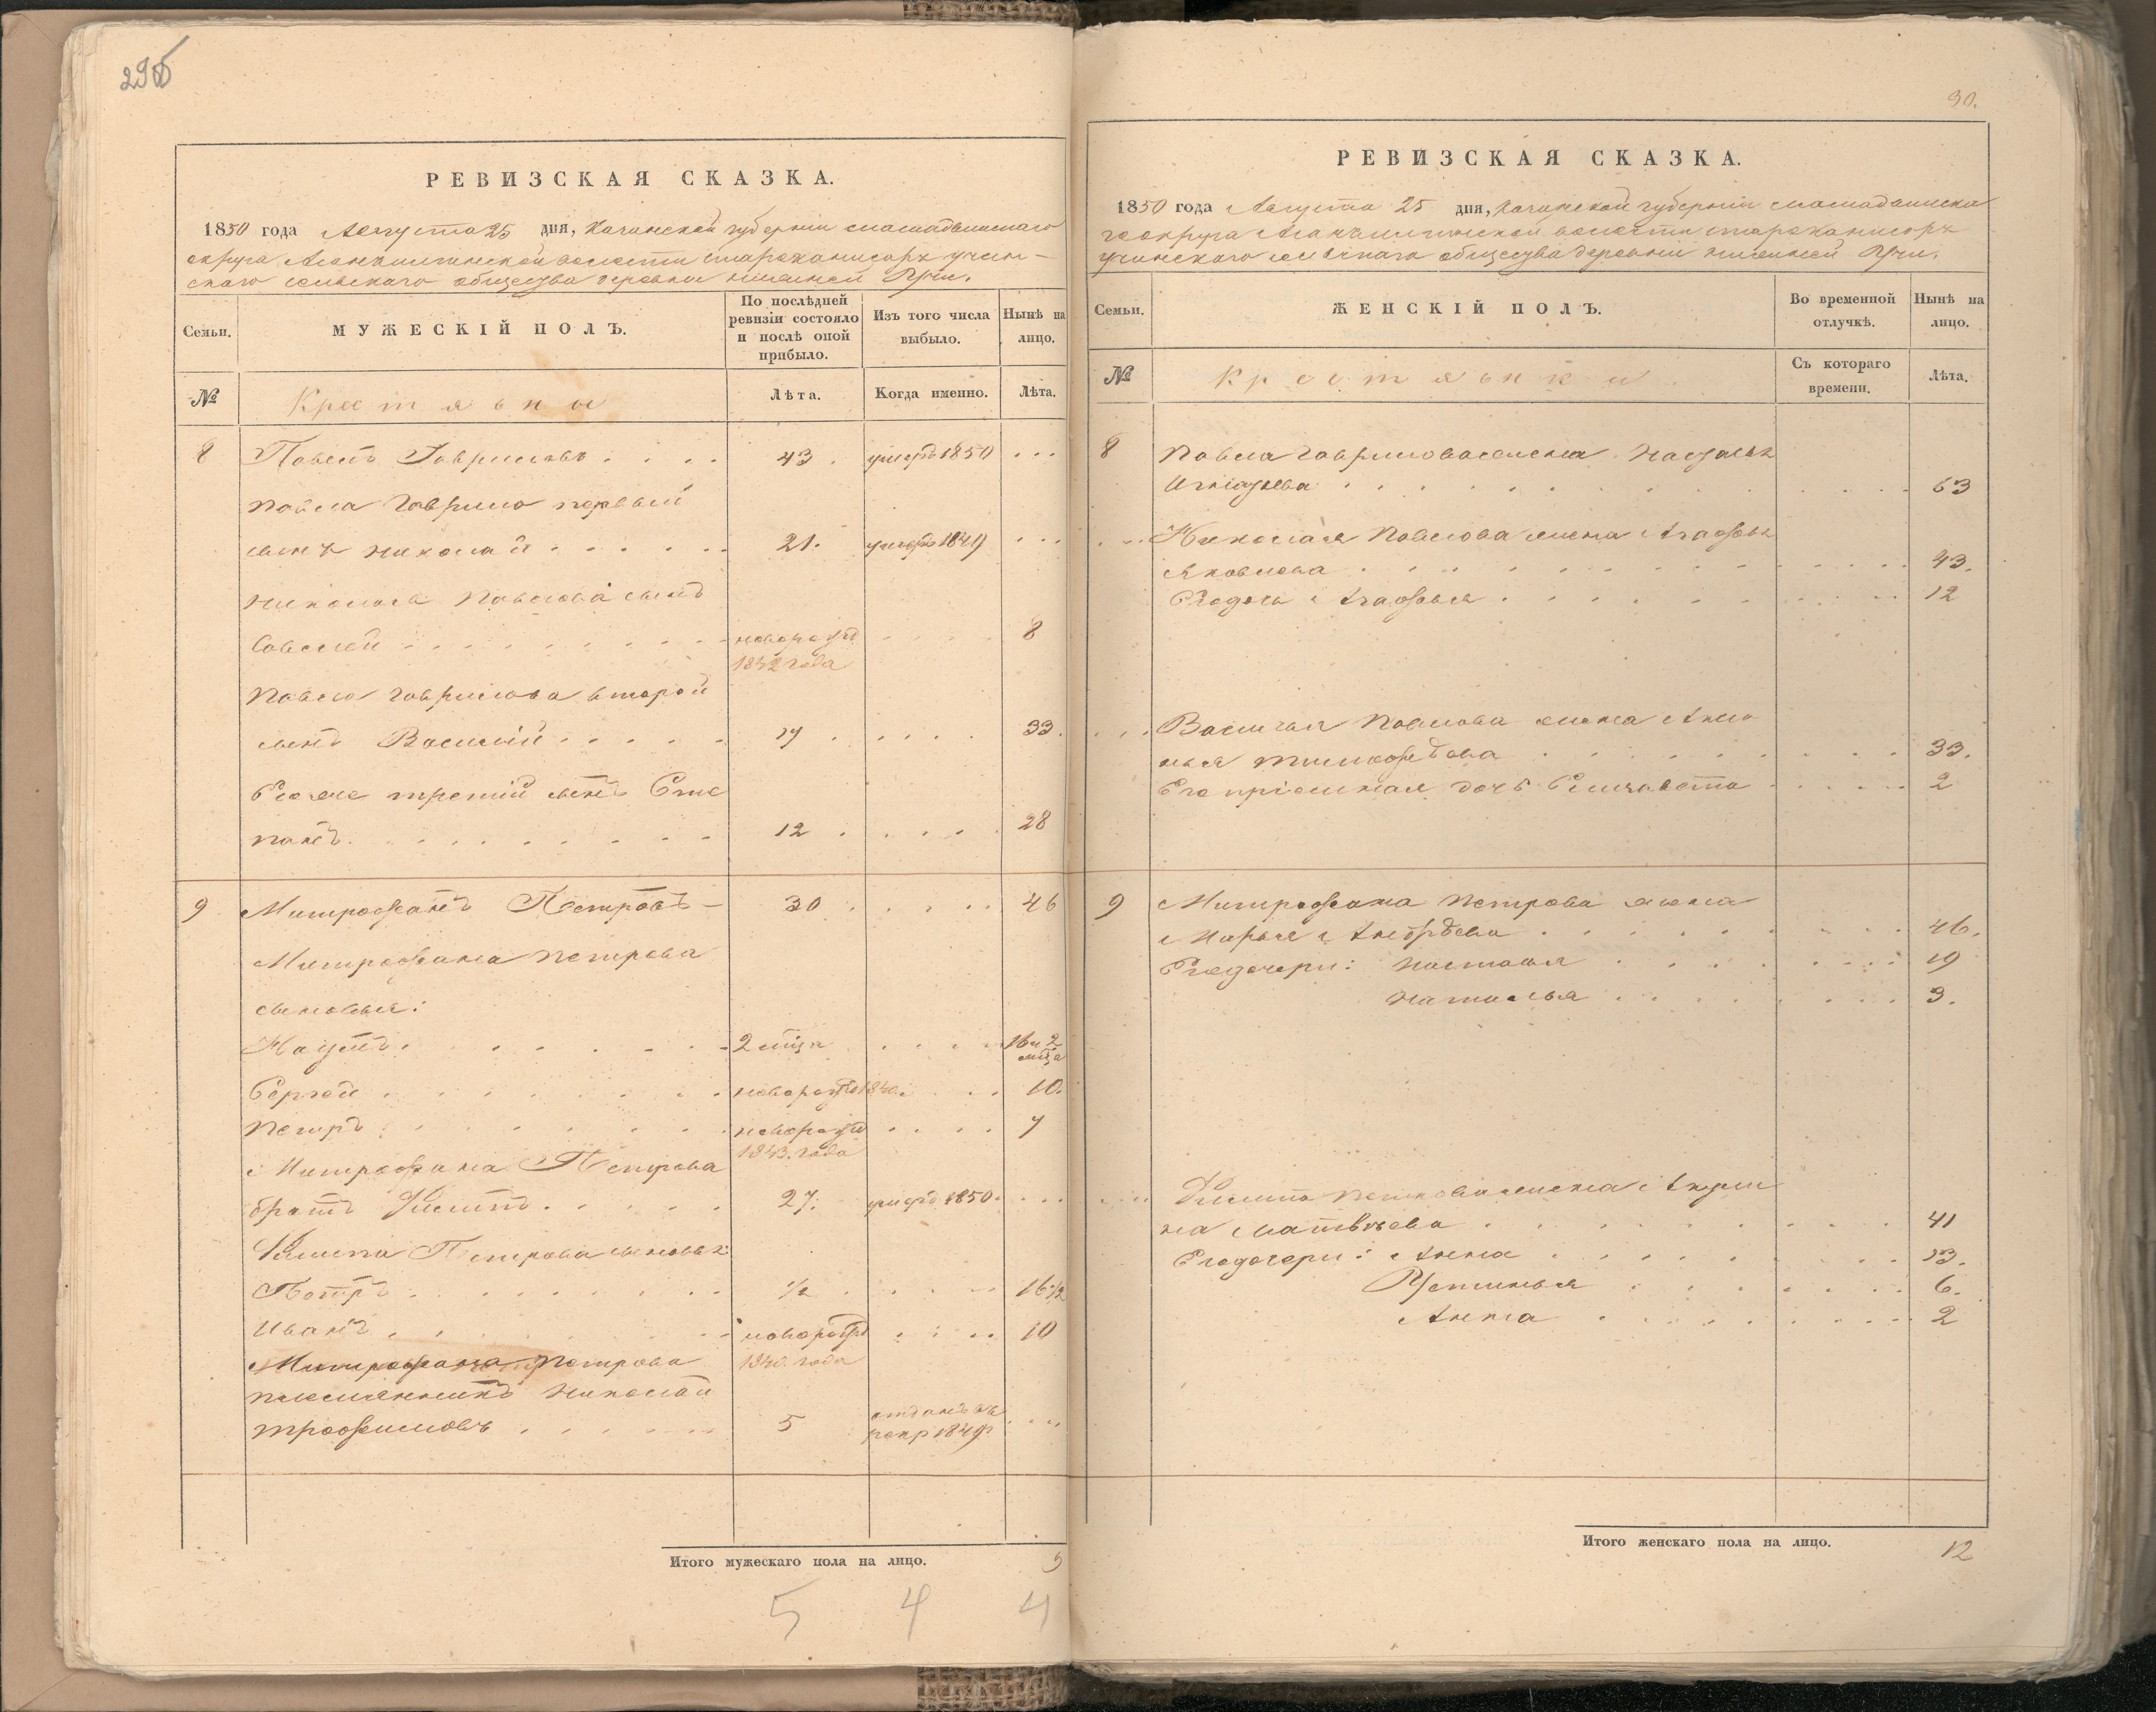 29б
РЕВИЗСКАЯ СКАЗКА.
1850 года Августа 25 дня, Казанской губерніи мамадышскаго
округа волости учин-
скаго сельскаго общества деревни нижней Учи.
Семьи.
МУЖЕСКІЙ ПОЛЪ.
По послѣдней ревизіи состояло и послѣ оной прибыло.
Изъ того числа выбыло.
Нынѣ на лицо.
№
Крестьяны
Лѣта.
Когда именно.
Лѣта.
8 Павелъ Гавриловъ . . . . 43 . умеръ 1850 . . .
Павла Гаврилова первый
сынъ Николай . . . . . . 21. умеръ 1849 . . .
Николая Павлова сынъ
Савелей . . . . . . . . новорожд . . . . 8
1842 года
Павла Гаврилова второй
сынъ Василій . . . . . 17 . . . . . 33.
Его же третій сынъ Сте
панъ . . . . . . . . . 12 . . . . . 28
9 Митрофанъ Петровъ – 30 . . . . . 46
Митрофана Петрова
сыновья:
Наумъ . . . . . . . 2 мѣца . . . . 16 и 2 мѣца
Сергей . . . . . . . новорожд 1840. . . . 10.
Петръ . . . . . . . новорожд . . . . 7
1843. года
Митрофана Петрова
братъ Филипъ . . . . . 27. умеръ 1850. . . .
Филипа Петрова сыновья:
Петръ . . . . . . . ½ . . . . . 16½
Иванъ . . . . . . . новорожд . . . . 10
1840. года
Митрофана Петрова
племянникъ Николай
трофимовъ . . . . . . 5 отданъ въ рекр 1849 . . .
Итого мужескаго пола на лицо. 9
5 4 4
30.
РЕВИЗСКАЯ СКАЗКА.
1850 года Августа 25 дня, Казанской губерніи мамадышска
го округа волости
учинскаго сельскаго общества деревни нижней Учи.
Семьи.
ЖЕНСКІЙ ПОЛЪ.
Во временной отлучкѣ.
Нынѣ на лицо.
№
Крестьянки.
Съ котораго времени.
Лѣта.
8 Павла Гаврилова жена
Игнатьева . . . . . . . . . 63
Николая Павлова жена Агафья
Яковлева . . . . . . . . . 43.
Его дочь Агафья . . . . . . . . 12
Василья Павлова жена
тимофѣева . . . . . . . . . 33.
Его пріемная дочь Елизавета . . . . . 2
9 Митрофана Петрова жена
Марья Андрѣева . . . . . . . . 46.
Его дочери: Настасья . . . . . . . 19
Наталья . . . . . . . 3.
Филипа Петрова жена Акули
на Матвѣева . . . . . . . . . 41
Его дочери: Анна . . . . . . . . 13.
Устинья . . . . . . . 6.
Анна . . . . . . . . 2
Итого женскаго пола на лицо. 12